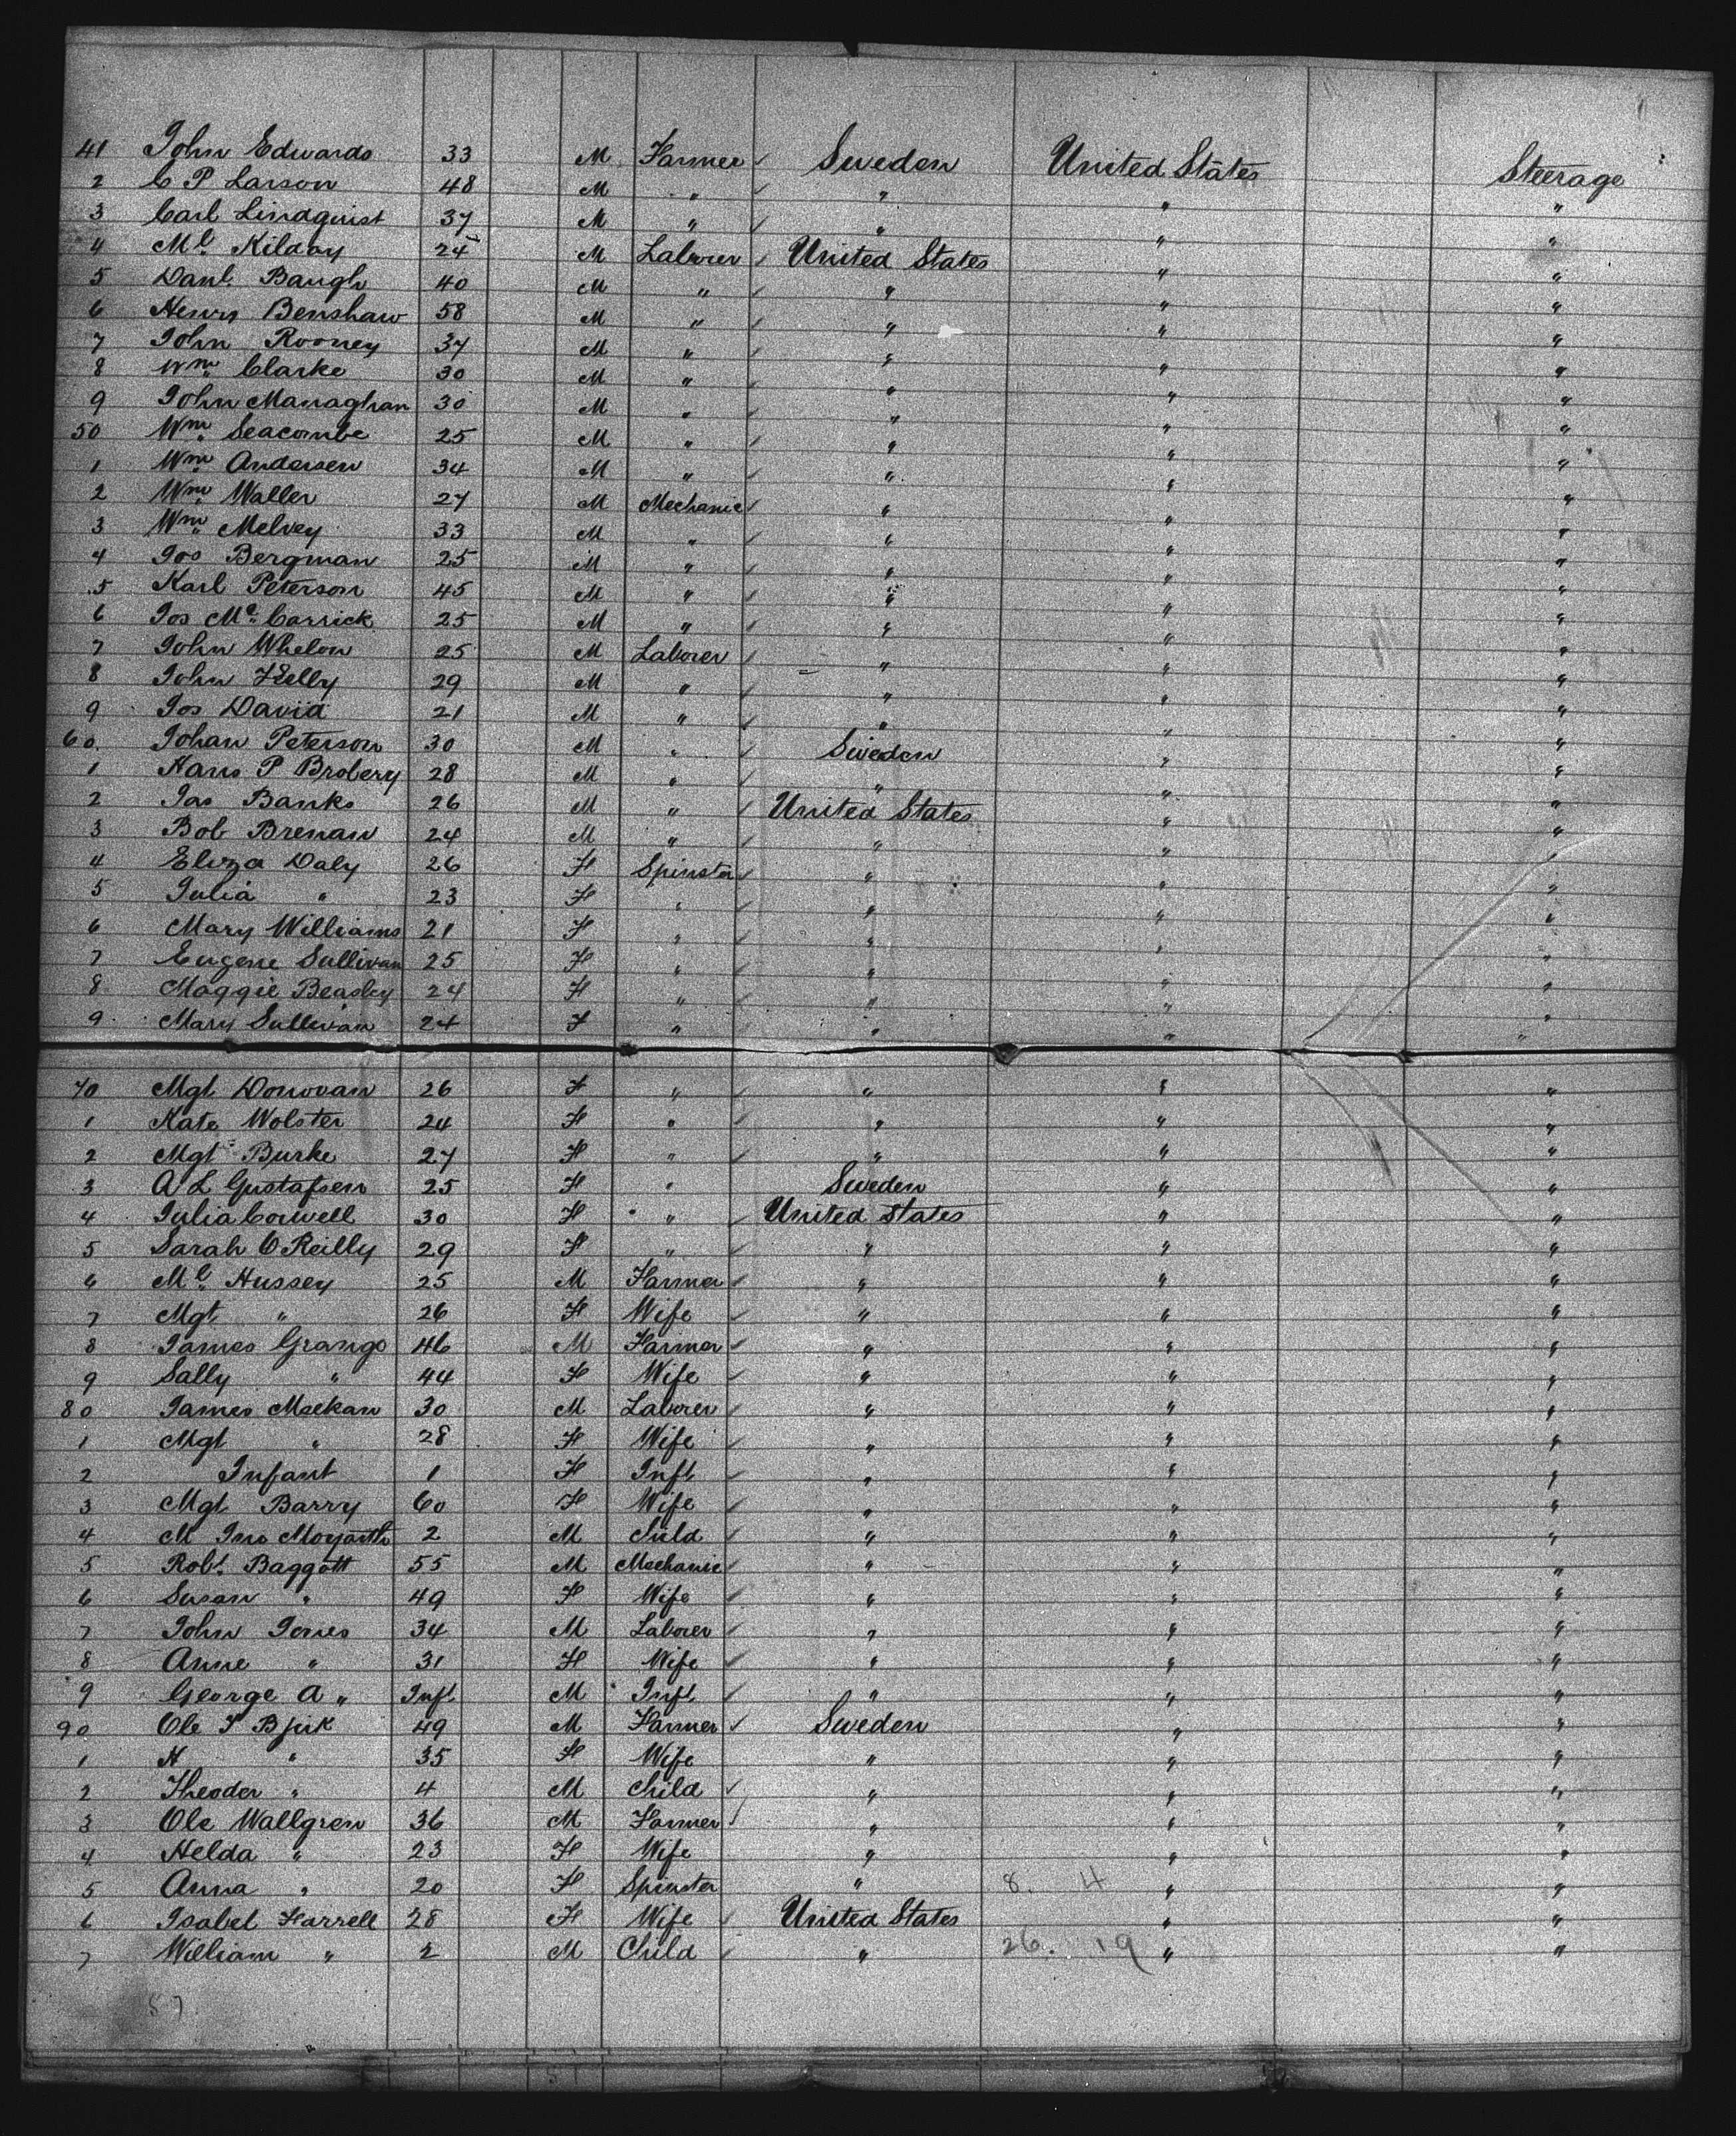 41 John Edwards 33 M Farmer Sweden United States Steerage
2 C P Larson 48 M " " " "
3 Carl Lindquist 37 M " " " "
4 Ml Kilday 24 M Laborer United States " "
5 Danl. Baugh 40 M " " " "
6 Henry Benshaw 58 M " " " "
7 John Rooney 37 M " " " "
8 Wm Clarke 30 M " " " "
9 John Managhan 30 M " " " "
50 Wm Seacombe 25 M " " " "
1 Wm Andersen 34 M " " " "
2 Wm Waller 27 M Mechanic " " "
3 Wm Melvey 33 M " " " "
4 Jos Bergman 25 M " " " "
5 Karl Peterson 45 M " " " "
6 Jos Mc Carrick 25 M " " " "
7 John Whelon 25 M Laborer " " "
8 John Kelly 29 M " " " "
9 Jos David 21 M " " " "
60 Johan Peterson 30 M " Sweden " "
1 Hans P Brobery 28 M " " " "
2 Jas Banks 26 M " United States " "
3 Bob Brenan 24 M " " " "
4 Eliza Daly 26 F Spinster " " "
5 Julia " 23 F " " " "
6 Mary Williams 21 F " " " "
7 Eugene Sullivan 25 F " " " "
8 Maggie Beasley 24 F " " " "
9 Mary Sullivan 24 F " " " "
70 Mgt Donovan 26 F " " " "
1 Kate Wolster 24 F " " " "
2 Mgt Burke 27 F " " " "
3 A L Gustafsen 25 F " Sweden " "
4 Julia Corwell 30 F " United States " "
5 Sarah O Reilly 29 F " " " "
6 Ml Hussey 25 M Farmer " " "
7 Mgt " 26 F Wife " " "
8 James Grange 46 M Farmer " " "
9 Sally " 44 F Wife " " "
80 James Meekan 30 M Laborer " " "
1 Mgt " 28 F Wife " " "
2 Infant 1 F Inft " " "
3 Mgt Barry 60 F Wife " " "
4 M Jno 2 M Child " " "
5 Robt. Baggott 55 M Mechanic " " "
6 Susan " 49 F Wife " " "
7 John Jones 34 M Laborer " " "
8 Anne " 31 F Wife " " "
9 George A " Inft M Inft " " "
90 Ole 49 M Farmer Sweden " "
1 H " 35 F Wife " " "
2 Theoder " 4 M Child " " "
3 Ole Wallgren 36 M Farmer " " "
4 Helda " 23 F Wife " " "
5 Anna " 20 F Spinster " 8. 4 " "
6 Isabel Farrell 28 F Wife United States " "
7 William " 2 M Child " 26. 19 " "
57